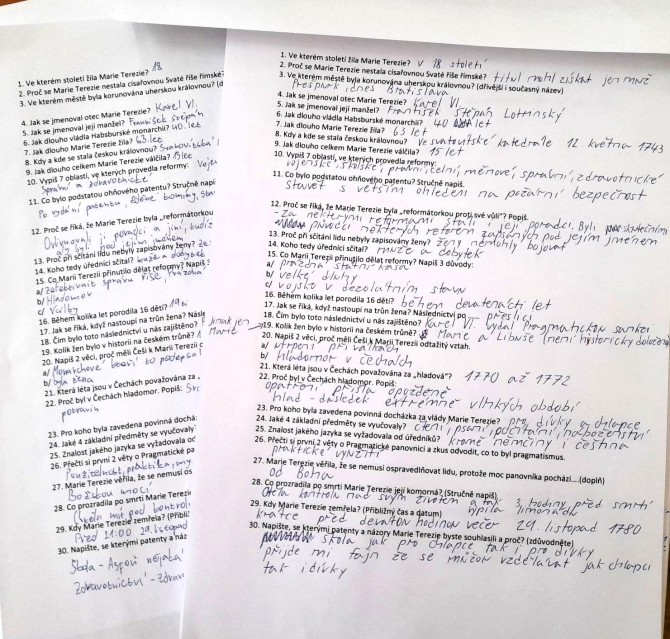 1. Ve kterém století žila Marie Terezie? 18
2. Proč se Marie Terezie nestala císařovnou Svaté říše římské?
3. Ve kterém městě byla korunována uherskou královnou? (d
4. Jak se jmenoval otec Marie Terezie? Karel VI.
5. Jak se jmenoval její manžel? František Štěpán
6. Jak dlouho vládla Habsburské monarchii? 40. let
7. Jak dlouho Marie Terezie žila? 63 let
8. Kdy a kde se stala českou královnou?
9. Jak dlouho celkem Marie Terezie válčila? 15 let
10. Vypiš 7 oblastí, ve kterých provedla reformy:
Správní a zdravotnické
11. Co bylo podstatou pohového patentu? Stručně napiš.
Po vydání patentu,
12. Proč se říká, že Marie Terezie byla „reformátorkou
13. Proč při sčítání lidu nebyly zapisovány ženy?
14. Koho tedy úředníci sčítal? muže a dobytek
15. Co Marii Terezii přinutilo dělat reformy? Napiš
a/ zefektivnit správu říše,
b/ Hladomor
c/ Války
16. Během kolika let porodila 16 dětí? 19
17. Jak se říká, když nastoupí na trůn žena? Násle
18. Čím bylo toto následnictví u nás zajištěno?
19. Kolik žen bylo v historii na českém trůně? 1 Marie
20. Napiš 2 věci, proč měli Češi k Marii Terezii
b/ byla žena
21. Která léta jsou v Čechách považována za
22. Proč byl v Čechách hladomor. Popiš:
potravin
23. Pro koho byla zavedena povinná dochá
24. Jaké 4 základní předměty se vyučovaly
25. Znalost jakého jazyka se vyžadovala od
26. Přečti si první 2 věty o Pragmatické pa
27. Marie Terezie věřila, že se nemusí os
Božskou mocí
28. Co prozradila po smrti Marie Terezii
29. Kdy Marie Terezie zemřela? (Přibli
Před 21:00 29. listopad
30. Napište, se kterými patenty a náz
Škola - Aspoň nějaká
Zdravotnictví - zdrav
1. Ve kterém století žila Marie Terezie? v 18 století
2. Proč se Marie Terezie nestala císařovnou Svaté říše římské? titul mohl získat jen muž
3. Ve kterém městě byla korunována uherskou královnou? (dřívější i současný název)
Prešpurk dnes Bratislava
4. Jak se jmenoval otec Marie Terezie? Karel VI
5. Jak se jmenoval její manžel? František Štěpán Lotrinský
6. Jak dlouho vládla Habsburské monarchii? 40 let
7. Jak dlouho Marie Terezie žila? 63 let
8. Kdy a kde se stala českou královnou? Ve svatovítské katedrále 12. května 1743
9. Jak dlouho celkem Marie Terezie válčila? 15 let
10. Vypiš 7 oblastí, ve kterých provedla reformy:
vojenské, školské, právní, celní, měnové, správní, zdravotnické
11. Co bylo podstatou pohového patentu? Stručně napiš.
stavět s větším ohledem na požární bezpečnost
12. Proč se říká, že Marie Terezie byla „reformátorkou proti své vůli"? Popiš.
- za některými reformami stáli i její poradci. Byli skutečnými
původci některých reforem zapsaných pod jejím jménem
13. Proč při sčítání lidu nebyly zapisovány ženy? ženy nemohly bojovat
14. Koho tedy úředníci sčítal? muže a dobytek
15. Co Marii Terezii přinutilo dělat reformy? Napiš 3 důvody:
a/ prázdná státní kasa
b/ velké dluhy
c/ vojsko v dezolatním stavu
16. Během kolika let porodila 16 dětí? během devatenácti let
17. Jak se říká, když nastoupí na trůn žena? Následnictví po přeslici
18. Čím bylo toto následnictví u nás zajištěno? Karel VI. vydal Pragmatickou sankci
19. Kolik žen bylo v historii na českém trůně? Marie a Libuše (není historicky doloženo
20. Napiš 2 věci, proč měli Češi k Marii Terezii odtažitý vztah.
a/ utrpení při válkách
b/ hladomor v Čechách
21. Která léta jsou v Čechách považována za „hladová"? 1770 až 1772
22. Proč byl v Čechách hladomor. Popiš:
opatření přišla opožděně
hlad - důsledek extrémně vlhkých období
23. Pro koho byla zavedena povinná docházka za vlády Marie Terezie? pro dívky a chlapce
24. Jaké 4 základní předměty se vyučovaly? čtení, psaní, počítání, náboženství
25. Znalost jakého jazyka se vyžadovala od úředníků? kromě němčiny i čeština
26. Přečti si první 2 věty o Pragmatické panovnici a zkus odvodit, co to byl pragmatismus.
praktické využití
27. Marie Terezie věřila, že se nemusí ospravedlňovat lidu, protože moc panovníka pochází....(doplň)
od Boha
28. Co prozradila po smrti Marie Terezii její komorná? (Stručně napiš)
Chtěla kontrolu nad svým životem a tak 3 hodiny před smrtí
vypila limonádu
29. Kdy Marie Terezie zemřela? (Přibližný čas a datum)
krátce před devátou hodinou večer 29. listopad 1780
30. Napište, se kterými patenty a názory Marie Terezie byste souhlasili a proč? (zdůvodněte)
škola jak pro chlapce tak i pro dívky
přijde mi fajn že se můžou vzdělávat jak chlapci
tak i dívky